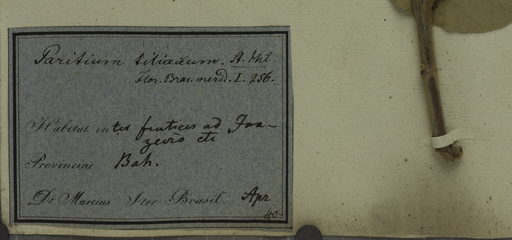 Paritium tiliaceum. A. Hil.
Flor. Bras. merid. I. 256.
Habitat inter frutices ad Joa-
zeiro etc
Provinciae Bah.
Dr Martius Iter Brasil. Apr